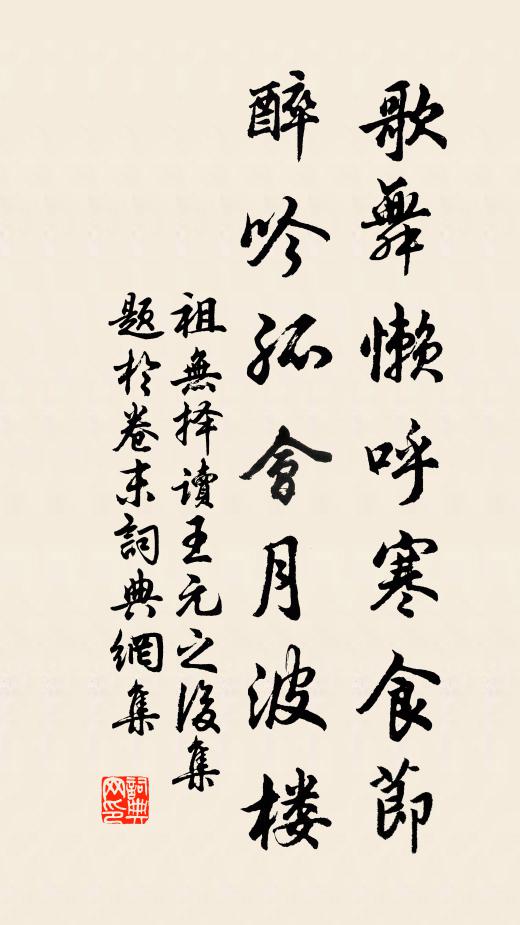 歌舞懶呼寒食節
醉吟孤會月波楼
祖無择讀王元之後集
題於卷末詞典網集
詞典网印